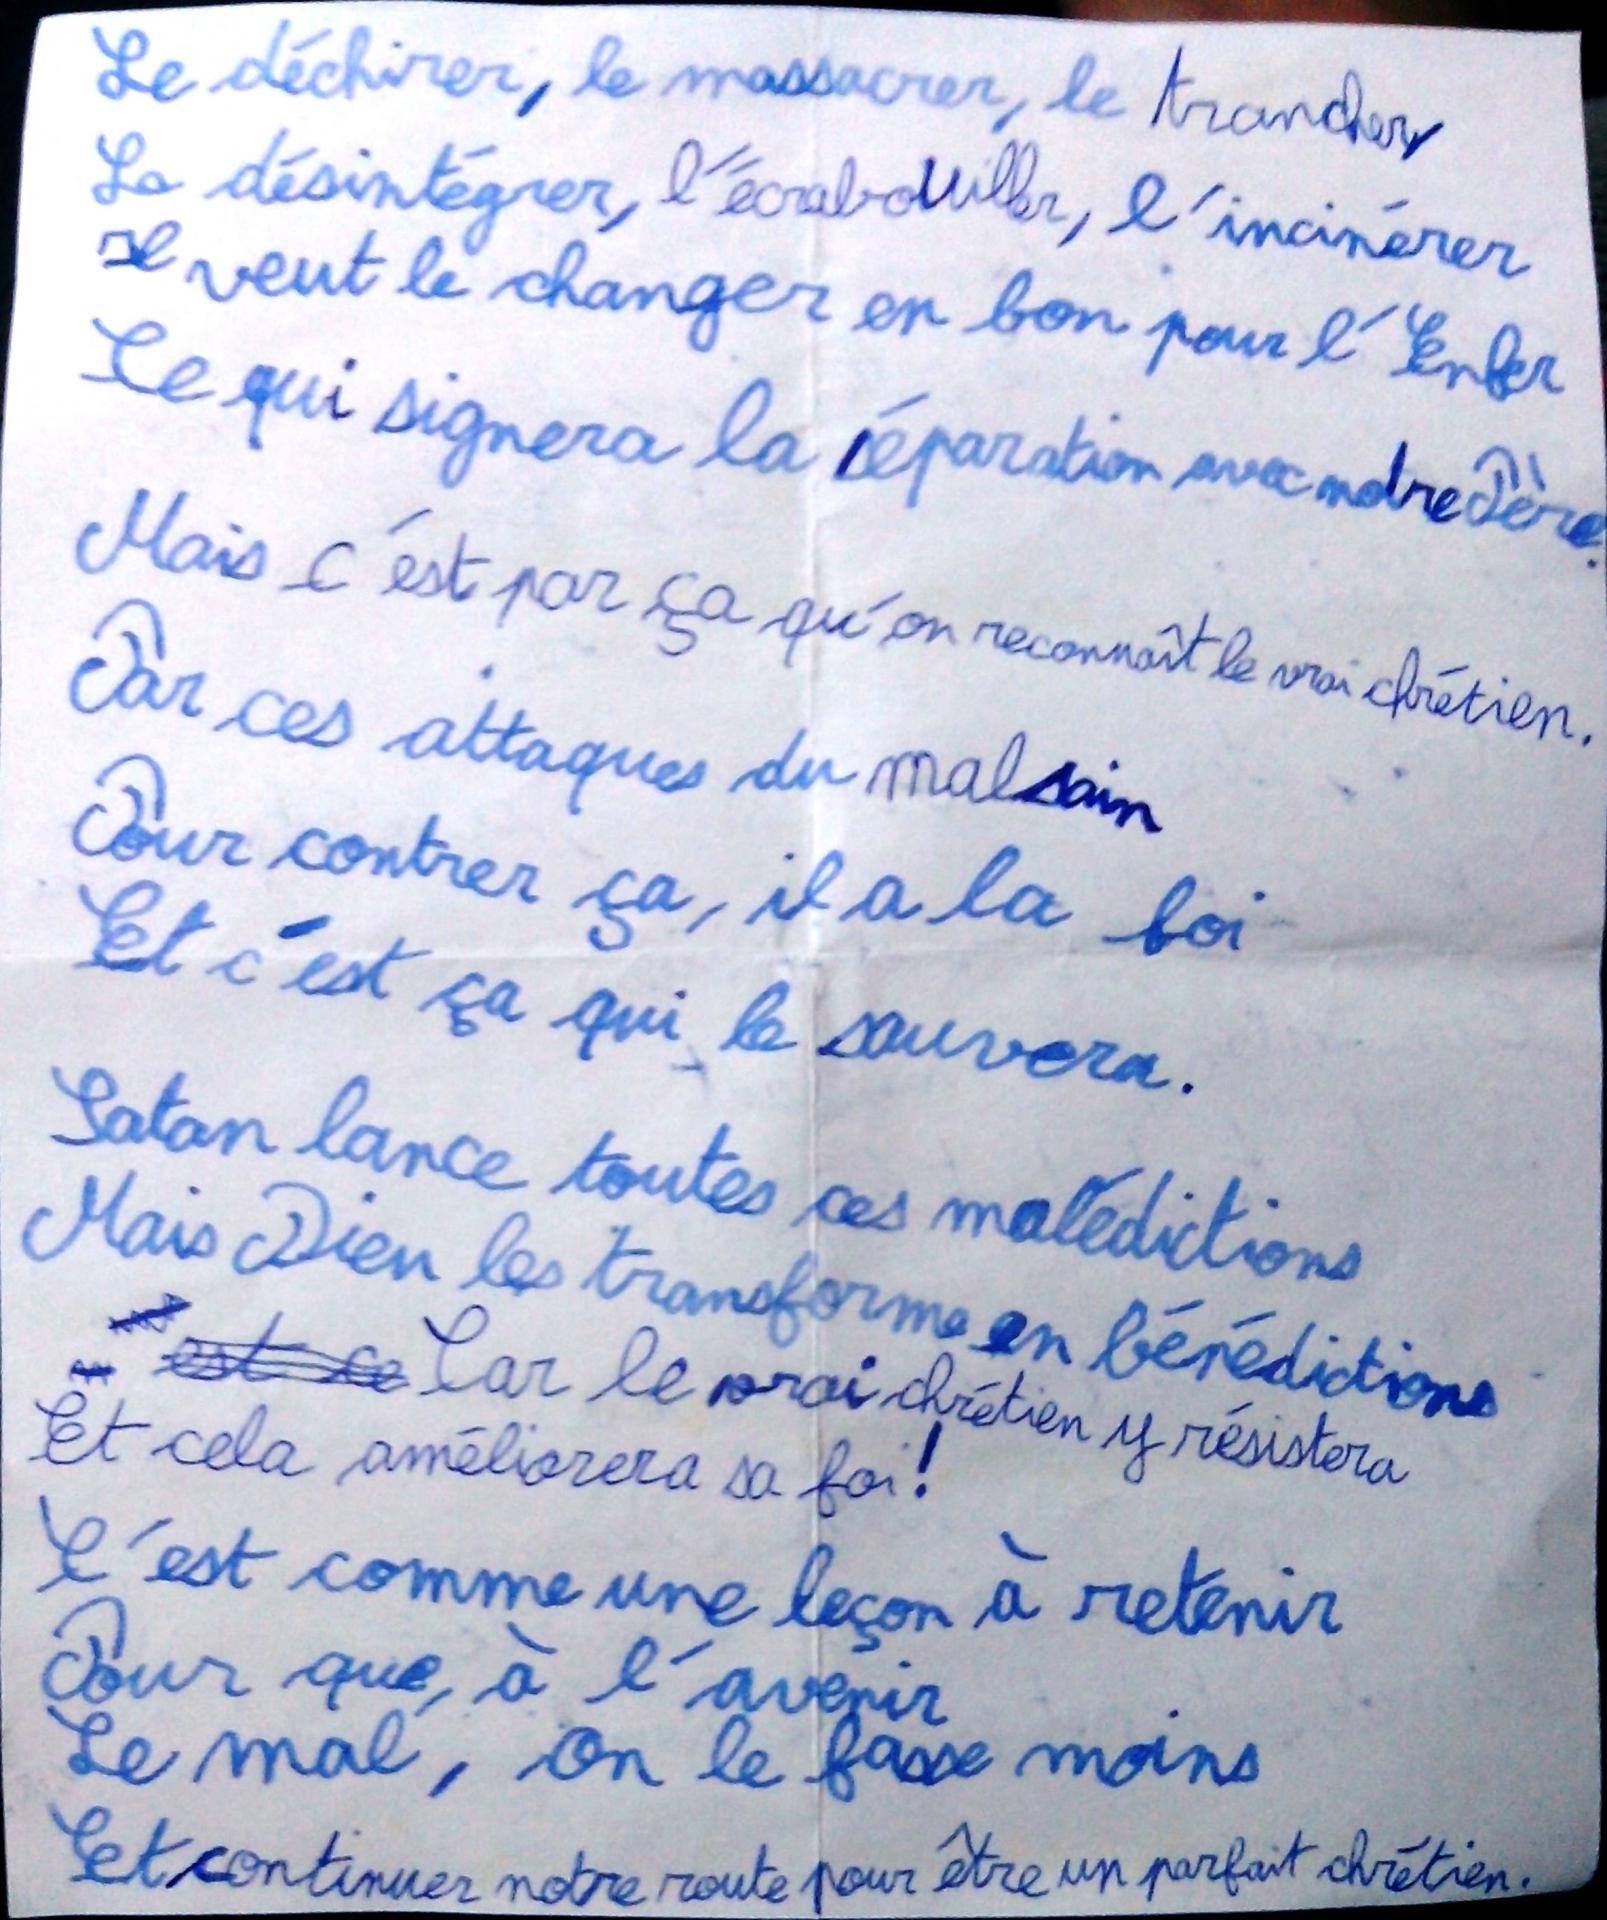 Le déchirer, le massacrer, le trancher,
Le désintégrer, l'écrabouiller, l'incinérer
Il veut le changer en bon pour l'Enfer
Ce qui signera la séparation avec notre Père.
Mais c'est par ça qu'on reconnaît le vrai chrétien.
Par ces attaques du malsain
Pour contrer ça, il a la foi
Et c'est ça qui le sauvera.
Satan lance toutes ces malédictions
Mais Dieu les transforme en bénédictions
est ce Car le vrai chrétien y résistera
Et cela améliorera sa foi!
C'est comme une leçon à retenir
Pour que, à l'avenir
Le mal, on le fasse moins
Et continuer notre route pour être un parfait chrétien.